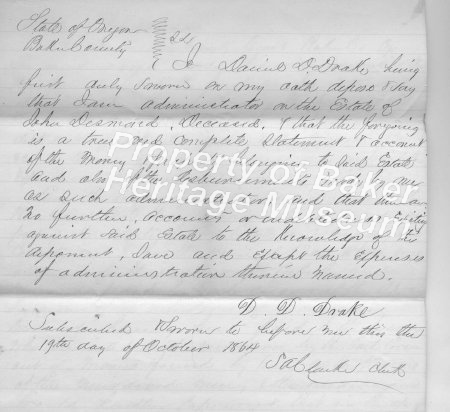 State of Oregon
Baker County } SS
I Daniel D. Drake being
first duly sworn on my oath depose & say
that I am administrator on the Estate of
John Desmond, Deceased. & that the foregoing
is a true and complete statement & account
of the Money belonging to said Estate
and also of the
as such administrator and that
no further accounts
against said Estate to the Knowledge of
deponent, Save and Except the Expenses
of administration therein named.
D. D. Drake
Subscribed & Sworn to before me this the
19th day of October 1864
S A Clarke Clerk
Property of Baker
Heritage Museum